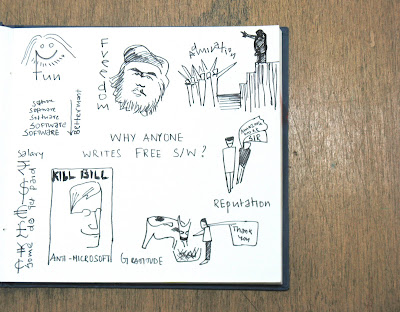 Fun
FREEDOM
Admiration
software
software
software
SOFTWARE
SOFTWARE
Betterment
WHY ANYONE
WRITES FREE S/W?
SIR
Salary
Some do get paid
Reputation
KILL BILL
ANTI-MICROSOFT
GRATITUDE
Thank
you